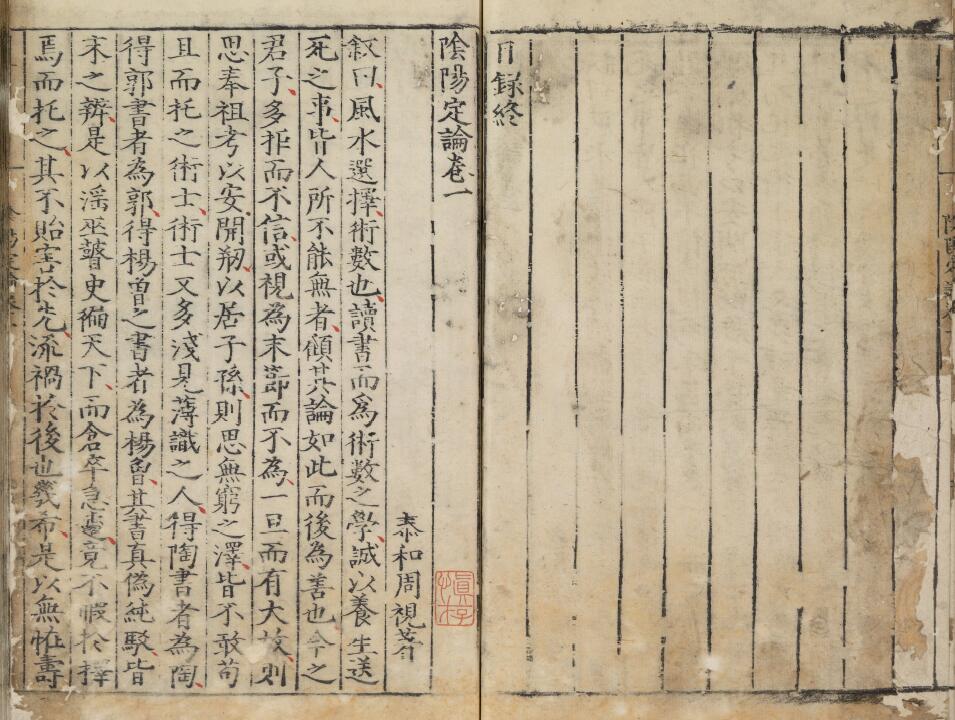 目録終
陰陽定論卷一
泰和周視著
叙曰風水選擇術數也讀書而爲術數之學誠以養生送
死之事皆人所不能無者顧其論如此而後為善也今之
君子多拒而不信或視為末節而不為一旦而有大故則
思奉祖考以安開剏以居子孫則思無窮之澤皆不敢苟
且而托之術士術士又多淺見薄識之人得陶書者為陶
得郭書者為郭得楊曾之書者為楊曾其書真偽純駁皆
末之辨是以滛巫瞽史徧天下而倉卒急遽竟不暇於擇
焉而托之其不貽害於先流禍於後也幾希是以無恠壽